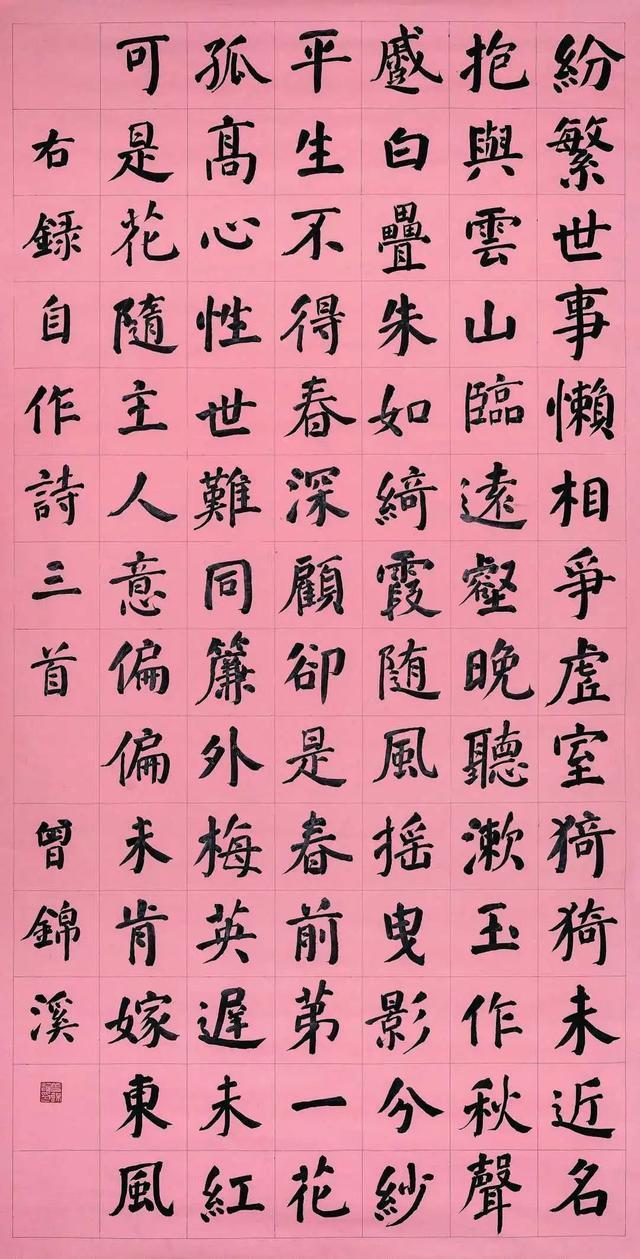 紛繁世事懶相爭虛室猗猗未近名
抱與雲山臨遠壑晚聽漱玉作秋聲
蹙白疊朱如綺霞随風摇曳影分紗
平生不得春深顧卻是春前第一花
孤髙心性世難同簾外梅英遲未紅
可是花隨主人意偏偏未肯嫁東風
右錄自作詩三首 曾錦溪